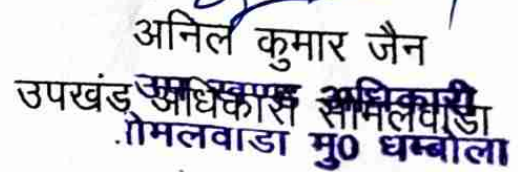 अनिल कुमार जैन
उपखंड अधिकारी सीमलवाडा
उप खण्ड अधिकारी
.ीमलवाडा मु0 धम्बोला